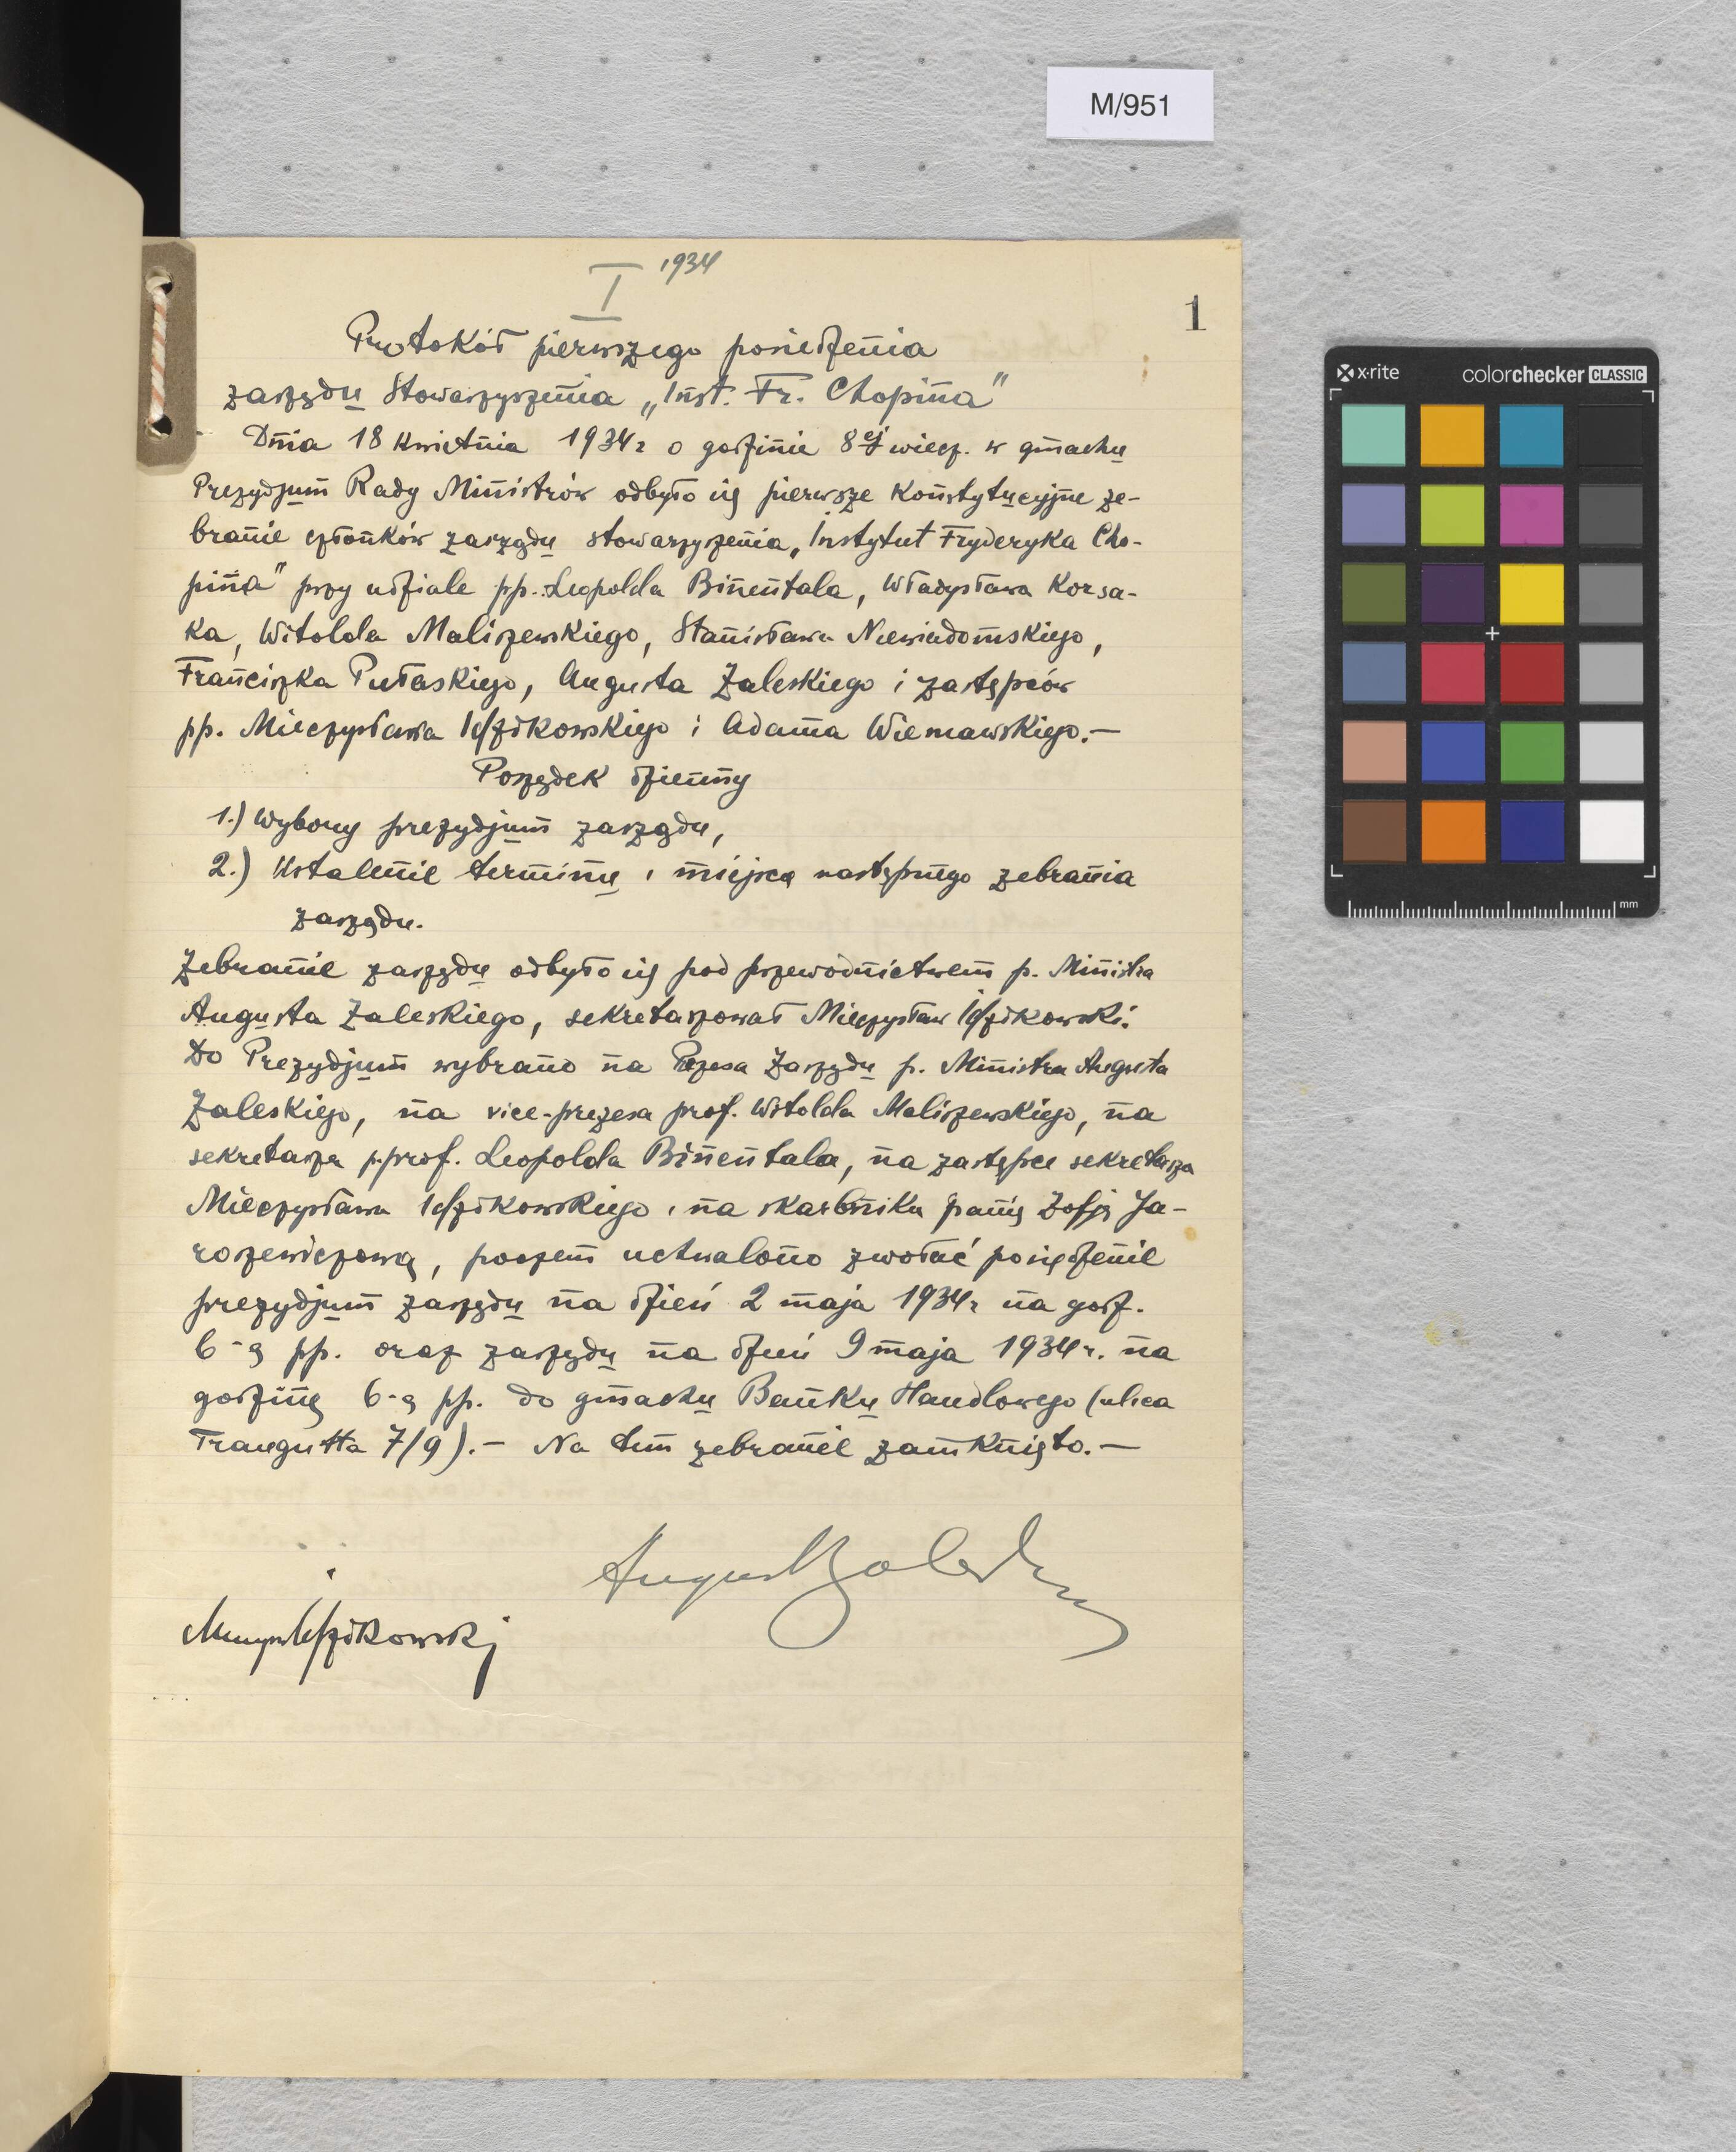 M/951
I 1934
1
Protokół pierwszego posiedzenia
zarządu Stowarzyszenia „Inst. Fr. Chopina"
Dnia 18 kwietnia 1934 r o godzinie 8ej wiecz. w gmachu
Prezydjum Rady Ministrów odbyło się pierwsze konstytucyjne ze-
branie członków zarządu stowarzyszenia „Instytut Fryderyka Cho-
pina" przy udziale pp. Leopolda Binentala, Władysława Korsa-
ka, Witolda Maliszewskiego, Stanisława Niewiadomskiego,
Franciszka Pułaskiego, Augusta Zaleskiego i zastępców
pp. Mieczysława Idzikowskiego i Adama Wieniawskiego.—
Porządek dzienny
1.) Wybory prezydjum zarządu,
2.) Ustalenie terminu i miejsca następnego zebrania
zarządu.
Zebranie zarządu odbyło się pod przewodnictwem p. Ministra
Augusta Zaleskiego, sekretarzował Mieczysław Idzikowski.
Do Prezydjum wybrano na Prezesa Zarządu p. Ministra Augusta
Zaleskiego, na vice-prezesa prof. Witolda Maliszewskiego, na
sekretarza p. prof. Leopolda Binentala, na zastępce sekretarza
Mieczysława Idzikowskiego i na skarbnika panią Zofję Ja-
roszewiczową, poczem uchwalono zwołać posiedzenie
prezydjum zarządu na dzień 2 maja 1934 r na godz.
6-ą pp. oraz zarządu na dzień 9 maja 1934 r. na
godzinę 6-ą pp. do gmachu Banku Handlowego (ulica
Traugutta 7/9).— Na tem zebranie zamknięto.—
August Zaleski
Mieczysław Idzikowski
x-rite colorchecker CLASSIC
mm